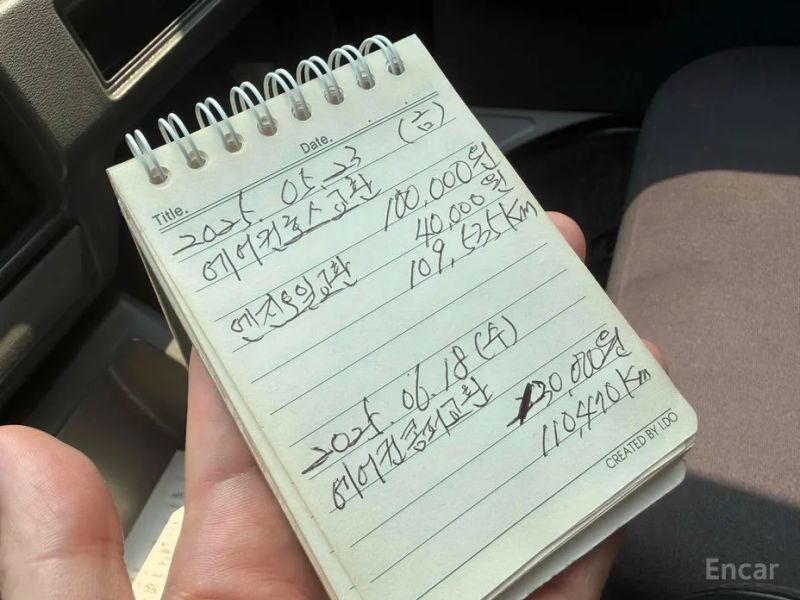 Date.
Title.
2025. 05. 23 (금)
에어컨호스교환 100,000원
엔진오일교환 40,000원
109,535Km
2025. 06. 18 (수)
에어컨콤퓨교환 130,000원
110,410Km
CREATED BY I.DO
Encar